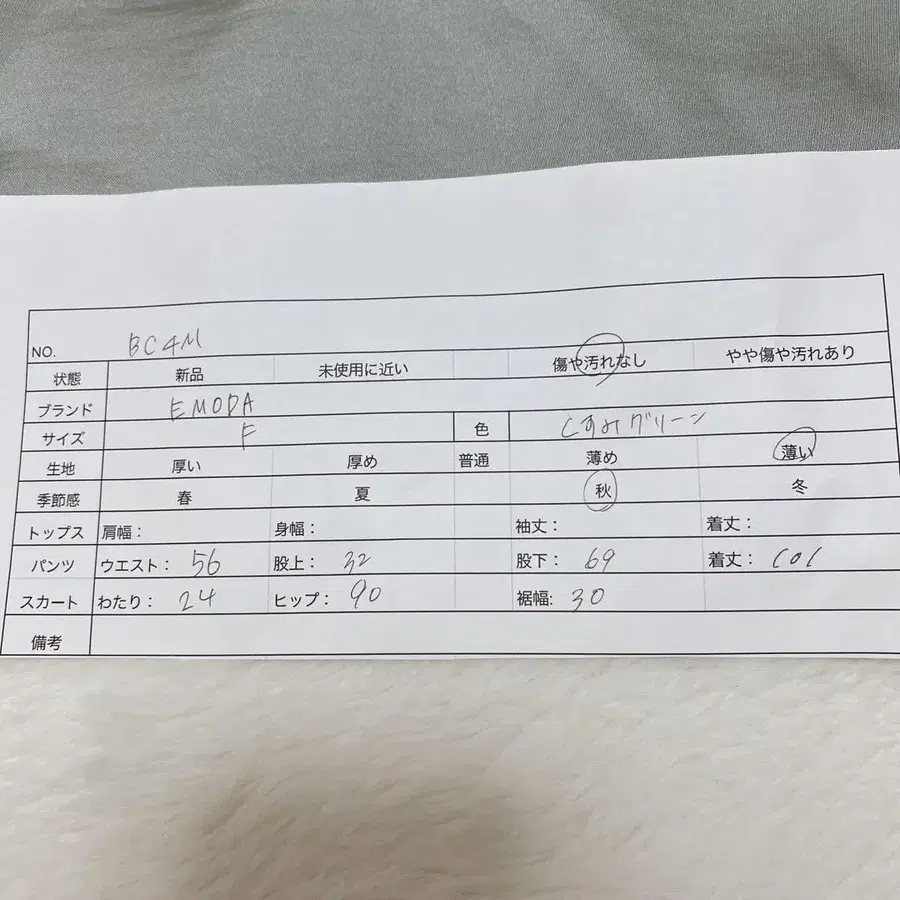 NO. BC4M
状態 新品 未使用に近い 傷や汚れなし やや傷や汚れあり
ブランド EMODA
サイズ F 色 くすみグリーン
生地 厚い 厚め 普通 薄め 薄い
季節感 春 夏 秋 冬
トップス 肩幅: 身幅: 袖丈: 着丈:
パンツ ウエスト: 56 股上: 32 股下: 69 着丈: 101
スカート わたり: 24 ヒップ: 90 裾幅: 30
備考